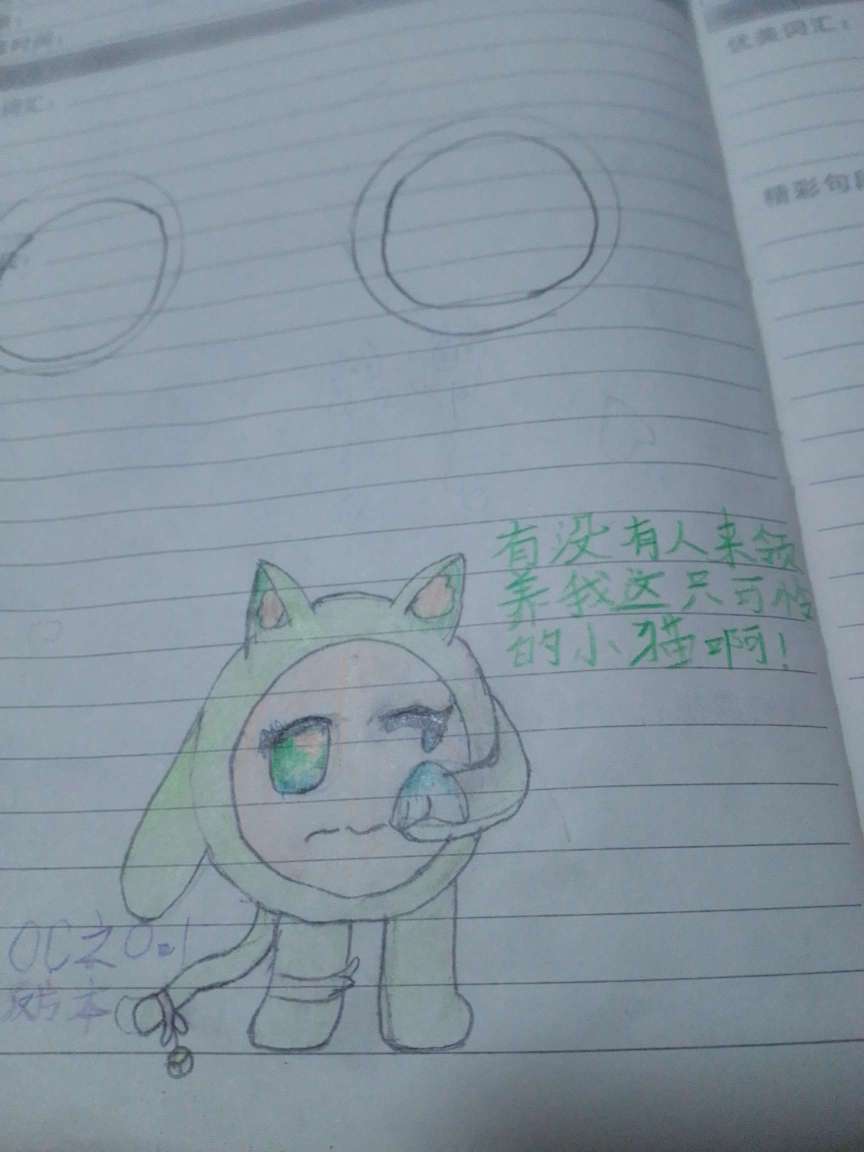 时间：
词汇：
优美词汇：
精彩句段
有没有人来领
养我这只可怜
的小猫啊！
OC之0.1
本